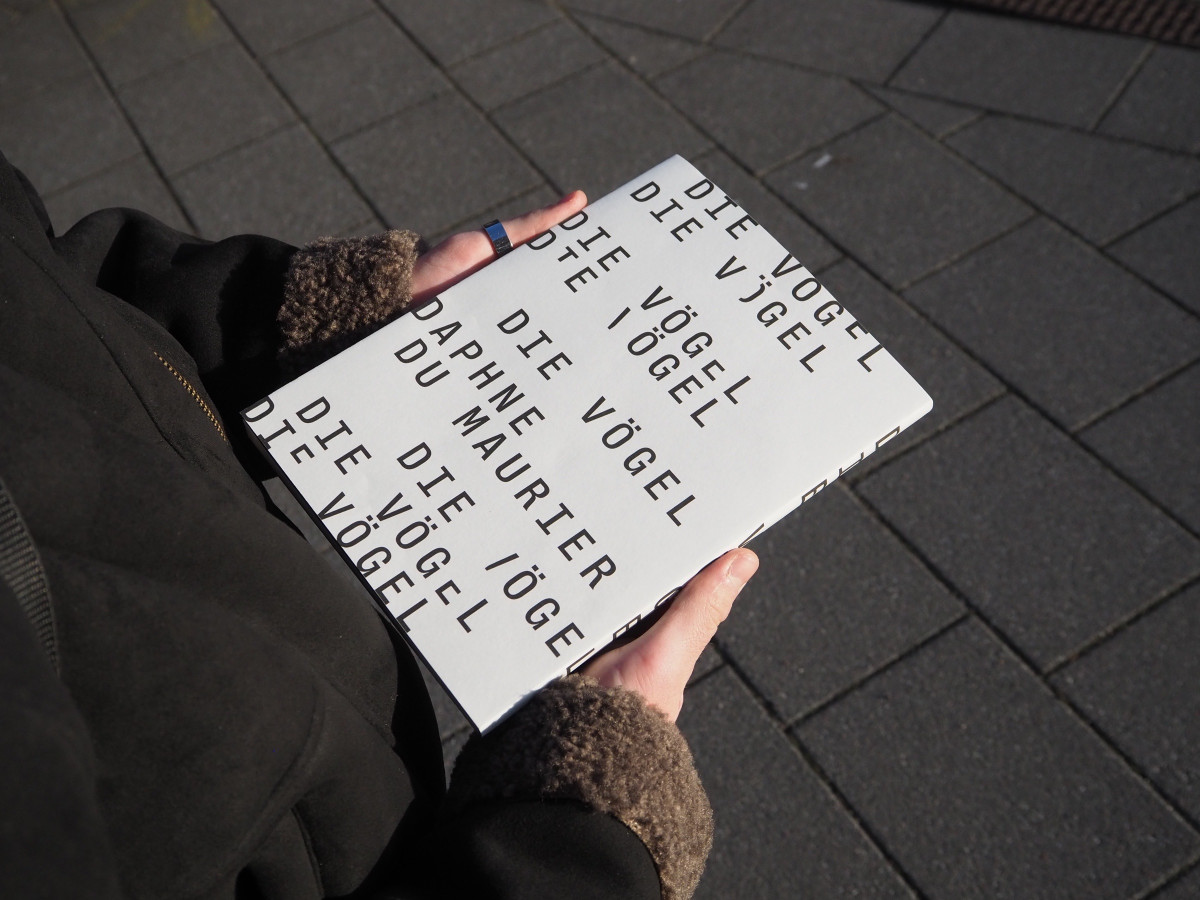 DIE VÖGEL
DIE VÖGEL
DIE VÖGEL
DIE VÖGEL
DIE VÖGEL
DAPHNE
DU MAURIER
DIE VÖGEL
DIE VÖGEL
DIE VÖGEL